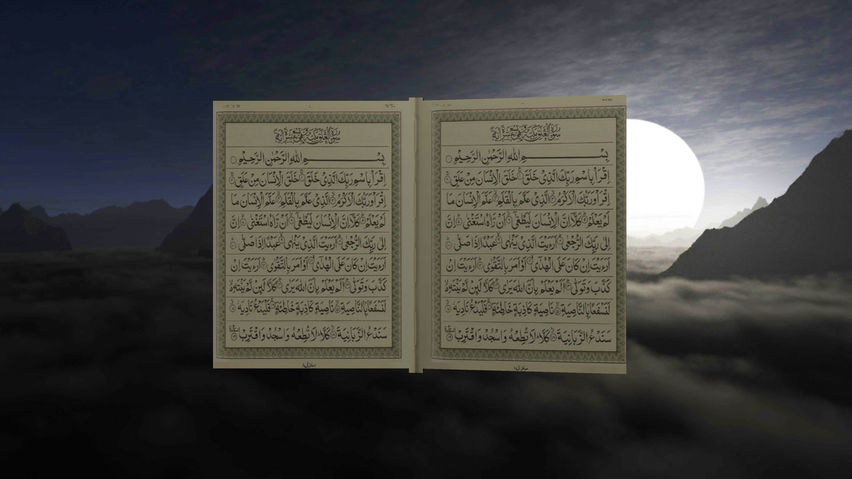 بِسْمِ اللهِ الرَّحْمٰنِ الرَّحِيْمِ
اِقْرَأْ بِاسْمِ رَبِّكَ الَّذِى خَلَقَ خَلَقَ الْاِنْسَانَ مِنْ عَلَقٍ
اِقْرَأْ وَرَبُّكَ الْاَكْرَمُ الَّذِى عَلَّمَ بِالْقَلَمِ عَلَّمَ الْاِنْسَانَ مَا
لَمْ يَعْلَمْ كَلَّا اِنَّ الْاِنْسَانَ لَيَطْغٰى اَنْ رَاٰهُ اسْتَغْنٰى اِنَّ
اِلٰى رَبِّكَ الرُّجْعٰى اَرَءَيْتَ الَّذِى يَنْهٰى عَبْدًا اِذَا صَلّٰى
اَرَءَيْتَ اِنْ كَانَ عَلَى الْهُدٰى اَوْ اَمَرَ بِالتَّقْوٰى اَرَءَيْتَ اِنْ
كَذَّبَ وَتَوَلّٰى اَلَمْ يَعْلَمْ بِاَنَّ اللهَ يَرٰى كَلَّا لَئِنْ لَمْ يَنْتَهِ
لَنَسْفَعًا بِالنَّاصِيَةِ نَاصِيَةٍ كَاذِبَةٍ خَاطِئَةٍ فَلْيَدْعُ نَادِيَهُ
سَنَدْعُ الزَّبَانِيَةَ كَلَّا لَا تُطِعْهُ وَاسْجُدْ وَاقْتَرِبْ
بِسْمِ اللهِ الرَّحْمٰنِ الرَّحِيْمِ
اِقْرَأْ بِاسْمِ رَبِّكَ الَّذِى خَلَقَ خَلَقَ الْاِنْسَانَ مِنْ عَلَقٍ
اِقْرَأْ وَرَبُّكَ الْاَكْرَمُ الَّذِى عَلَّمَ بِالْقَلَمِ عَلَّمَ الْاِنْسَانَ مَا
لَمْ يَعْلَمْ كَلَّا اِنَّ الْاِنْسَانَ لَيَطْغٰى اَنْ رَاٰهُ اسْتَغْنٰى اِنَّ
اِلٰى رَبِّكَ الرُّجْعٰى اَرَءَيْتَ الَّذِى يَنْهٰى عَبْدًا اِذَا صَلّٰى
اَرَءَيْتَ اِنْ كَانَ عَلَى الْهُدٰى اَوْ اَمَرَ بِالتَّقْوٰى اَرَءَيْتَ اِنْ
كَذَّبَ وَتَوَلّٰى اَلَمْ يَعْلَمْ بِاَنَّ اللهَ يَرٰى كَلَّا لَئِنْ لَمْ يَنْتَهِ
لَنَسْفَعًا بِالنَّاصِيَةِ نَاصِيَةٍ كَاذِبَةٍ خَاطِئَةٍ فَلْيَدْعُ نَادِيَهُ
سَنَدْعُ الزَّبَانِيَةَ كَلَّا لَا تُطِعْهُ وَاسْجُدْ وَاقْتَرِبْ